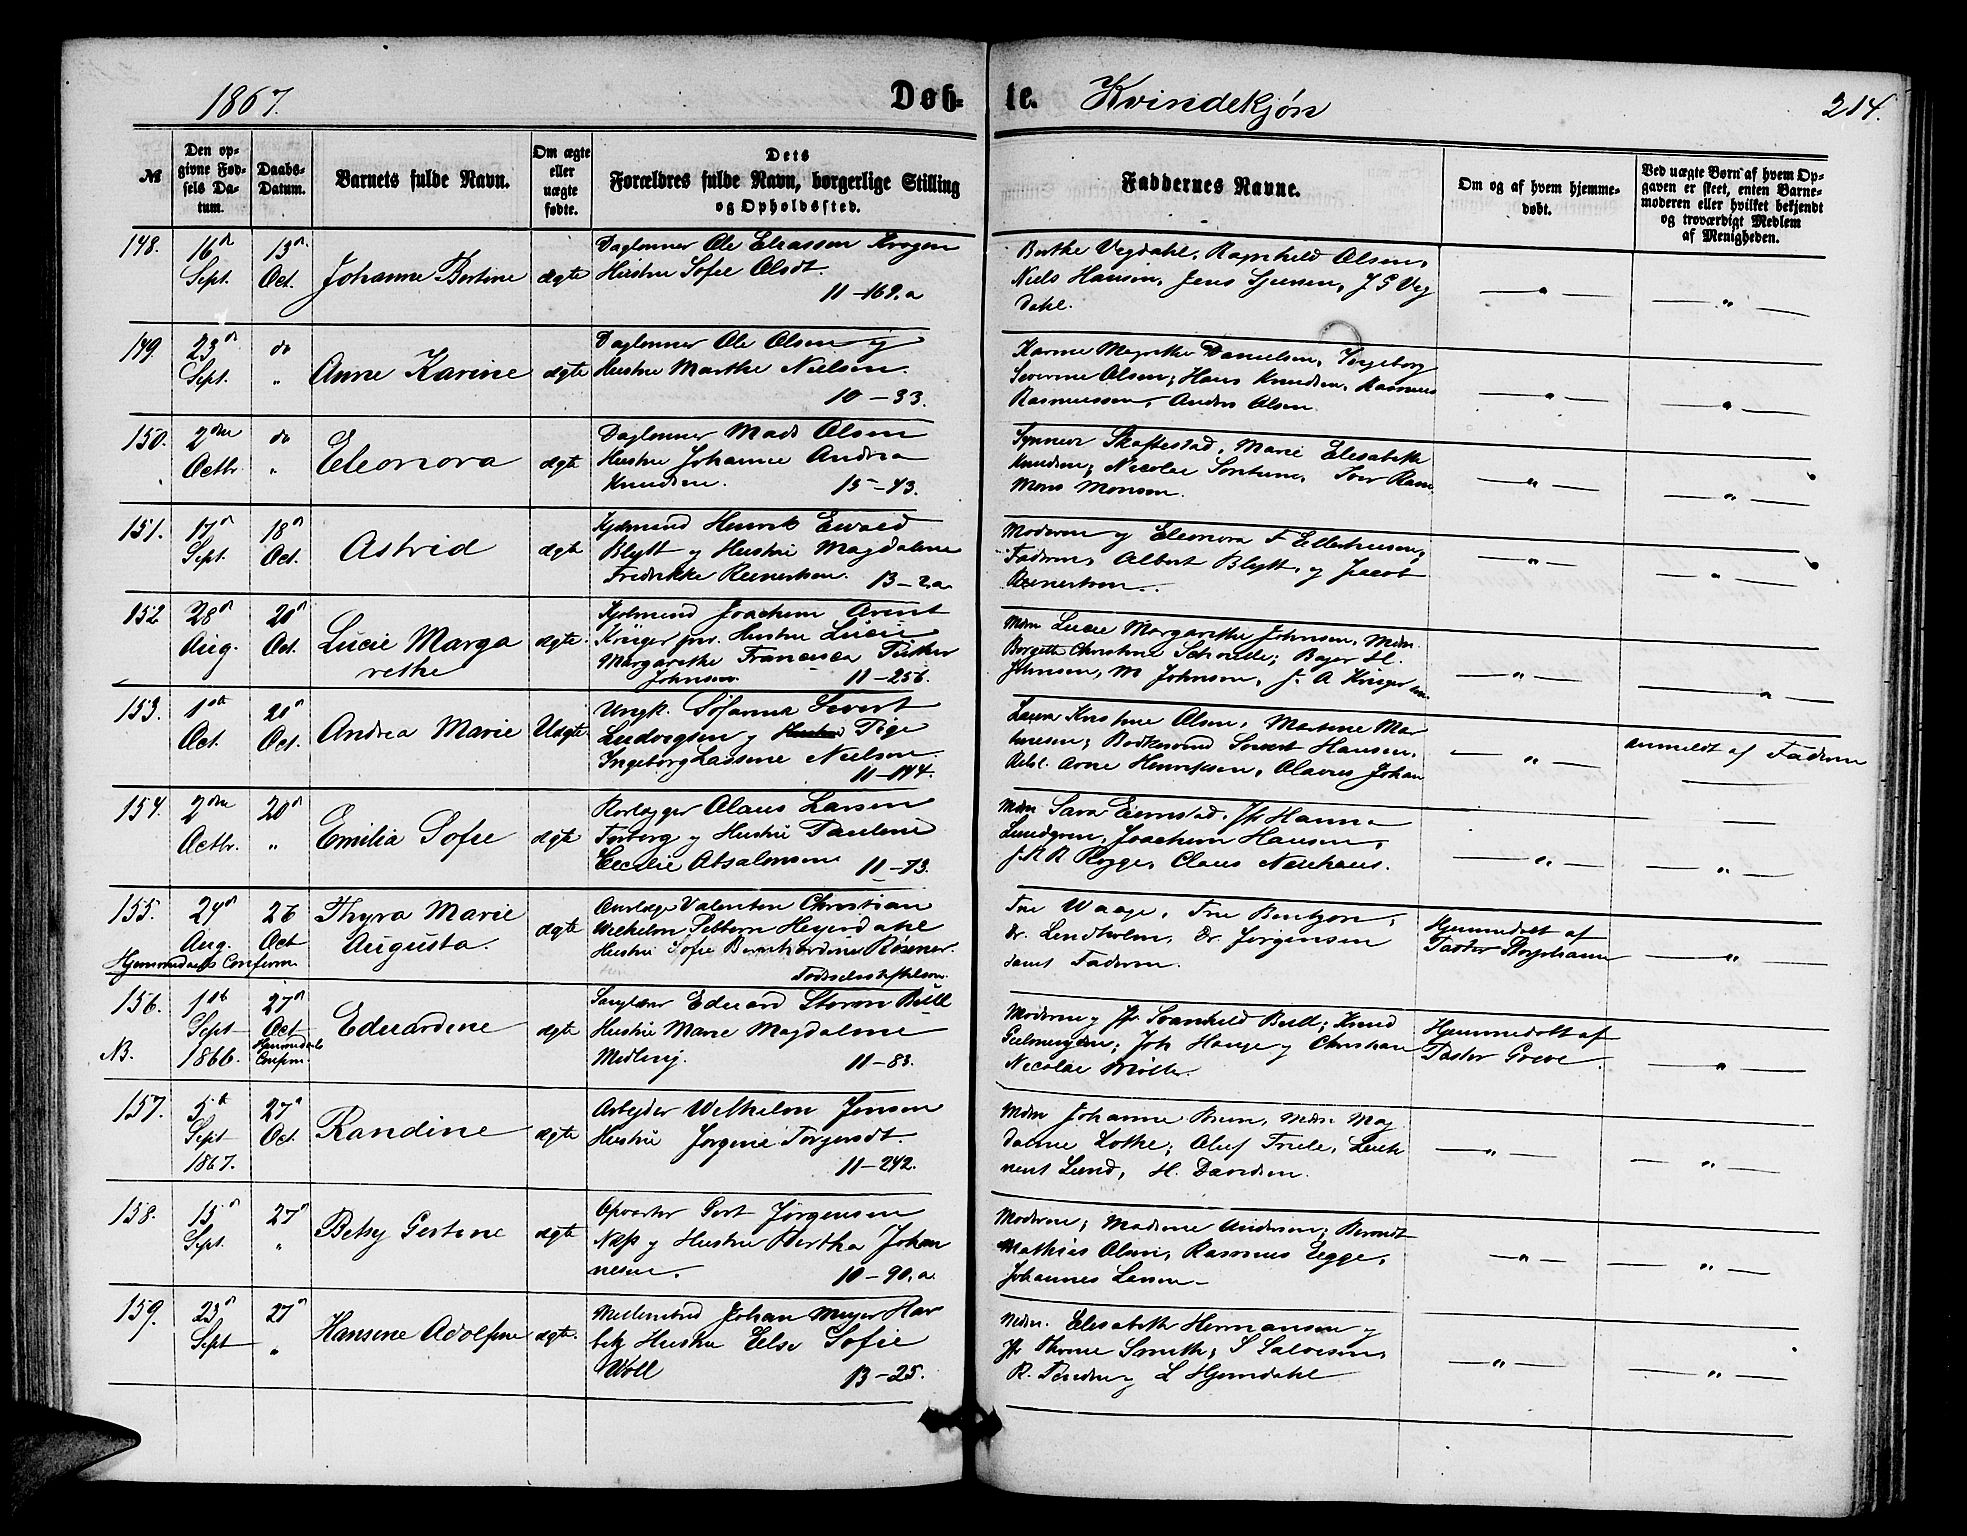 1867.
Døb-
te.
Kvindekjøn
214.
№
Den op-
givne Fød-
sels Da-
tum.
Daabs-
Datum.
Barnets fulde Navn.
Om ægte
eller
uægte
fødte.
Dets
Forældres fulde Navn, borgerlige Stilling
og Opholdssted.
Faddernes Navne.
Om og af hvem hjemme-
døbt.
Ved uægte Børn af hvem Op-
gaven er skeet, enten Barne-
moderen eller hvilket bekjendt
og troværdigt Medlem
af Menigheden.
148.
16
Sept.
13
Oct.
Johanne Bertine
ægte
Daglønner Ole Eliassen Krogen
Hustru Sofie Olsdt.
11-169.a
Berthe Vegdahl, Ragnhild Olsen,
Niels Hansen, Jens Sjursen, J G Veg
Dahl.
149.
23
Sept.
do
"
Anne Karine
ægte
Daglønner Ole Olsen og
Hustru Marthe Nielsen.
10-33.
Karine Margrethe Danielsen, Ingeborg
Severine Olsen; Hans Knudsen, Rasmus
Rasmussen, Anders Olsen.
150.
2den
Octbr.
do
"
Eleonora
ægte
Daglønner Mads Olsen
Hustru Johanne Andrea
Knudsen.
15-43.
Synneve Skaftestad, Marie Elisabeth
Knudsen; Nicolai Sontum, Iver
Mons Monsen.
151.
17
Sept.
18
Oct.
Astrid
ægte
Kjøbmand Henrik Ewald
Blytt og Hustru Magdalene
Fredrikke Reinertsen.
13-2.a
Moderen og Eleonora F Ellerhusen;
Faderen, Albert Blytt, og Jacob
Reinertsen.
152
28
Aug.
20
Oct.
Lucie Marga
rethe
ægte.
Kjøbmand Joachim Arent
Krüger jnr. Hustru Lucie
Margarethe Francisca
Johnsen.
11-256.
Mdm Lucie Margarethe Johnsen, Mdm
Christine; Bajer H.
Johnsen, M Johnsen, J. A Krüger
153.
Oct.
20
Oct.
Andrea Marie
Uægte.
Ungk. Sivert
Ludvigsen og Pige
Ingeborg Lassine Nielsen
11-144.
Laura Kristine Olsen, Martine Mar
tinesen; Sivert Hansen,
Arne Henriksen, Olavus Johan
anmeldt af Faderen
154.
2den
Octbr.
20
"
Emilia Sofie
ægte
Claus Larsen
Torborg og Hustru Pauline
Cecilie Absalonsen
11-73.
Mdm Sara, Jfr Hanna
Lundgren, Joachim Hansen,
Claus Neuhaus.
155.
24
Aug.
26
Oct
Hjemmedaabs Confirm.
Thyra Marie
Augusta.
ægte
Valentin Christian
Wilhelm Heyerdahl
Hustru Sofie Bernhardine Rosener.
Fødselsstiftelsen.
Fru Waage, Fru Bentzon,
Dr. Lindholm, Dr. Jørgensen
samt Faderen.
Hjemmedøbt af
Pastor
156.
NB.
Sept
1866.
27
Oct
Hjemmedaab
Confirm.
Eduardine
ægte
Eduard Storm Bull
Hustru Marie Magdalene
Midling.
11-83.
Moderen og Jfr Svanhild Bull; Knud
Joh Hauge og Christian
Nicolai Møller.
Hjemmedøbt af
Pastor Greve.
157.
5
Sept
1867.
27
Oct.
Randine
ægte
Arbejder Wilhelm Jensen
Hustru Jørgine Torgersdt.
11-242.
Mdm Johanne Bruun, Mdm Mag
dalene Lothe; Oluf Friele, Lieute
nant Lund, H. Davidsen.
158.
15
Sept.
27
"
Betsy Gertine
ægte
Opvarter Gert Jørgensen
Næss og Hustru Bertha Johan
nesen.
10-90.a.
Moderen; Madame Andersen; Berndt
Mathias Olsen, Rasmus Egge,
Johannes Larsen
159.
23
Sept
27
"
Hansine Adolfine
ægte.
Møllersvend Johan Meyer Har
bitz Hustru Else Sofie
Woll
13-25.
Mdm. Elisabeth Hermansen og
Jfr Smith; S Salvesen,
R. og L Hjemdahl